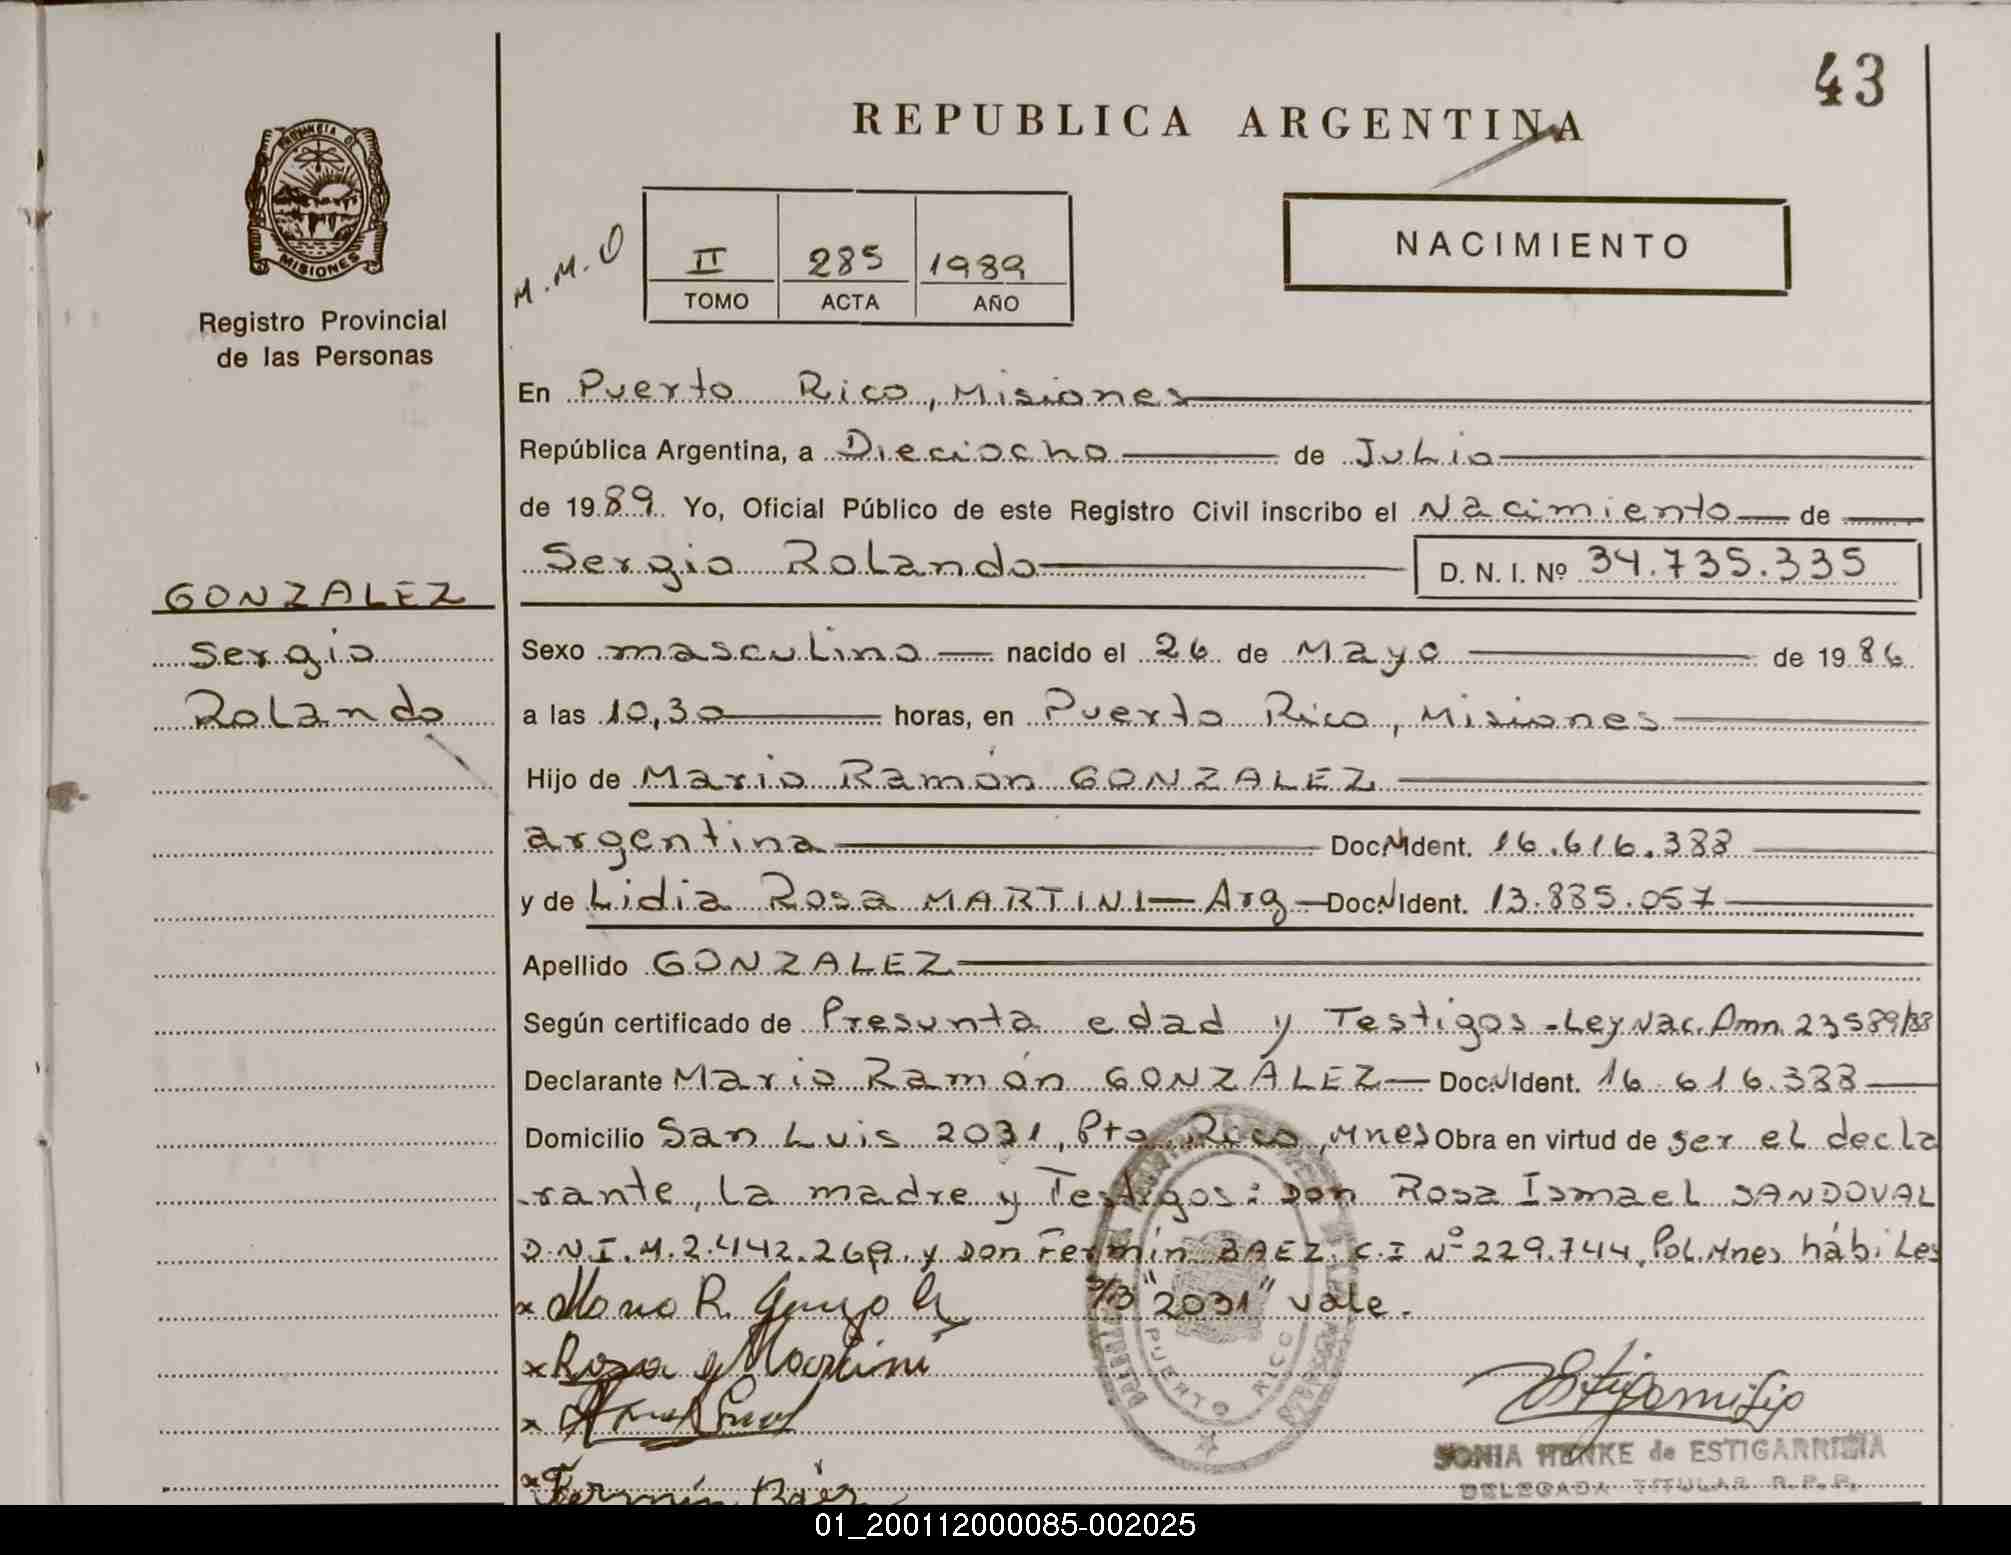 43
REPUBLICA ARGENTINA
PROVINCIA DE
MISIONES
Registro Provincial
de las Personas
M.M.O
II 285 1989
TOMO ACTA AÑO
NACIMIENTO
En Puerto Rico, Misiones
República Argentina, a Dieciocho de Julio
de 1989. Yo, Oficial Público de este Registro Civil inscribo el Nacimiento de
Sergio Rolando D. N. I. Nº 34.735.335
GONZALEZ
Sergio
Rolando
Sexo masculino nacido el 26 de Mayo de 1986
a las 10,30 horas, en Puerto Rico, Misiones
Hijo de Mario Ramón GONZALEZ
argentina Doc. Ident. 16.616.388
y de Lidia Rosa MARTINI - Arg - Doc. Ident. 13.885.057
Apellido GONZALEZ
Según certificado de Presunta edad y Testigos - Ley Nac. Amn. 23589/88
Declarante Mario Ramón GONZALEZ Doc. Ident. 16.616.388
Domicilio San Luis 2031, Pto. Rico, Mnes Obra en virtud de ser el decla
rante, la madre y Testigos: Don Rosa Ismael SANDOVAL
D.N.I.M. 2.442.269. y Don Fermín BAEZ C.I Nº 229.744, Pol. Mnes hábiles
S/B "2031" vale.
x Mario R. Gonzalez
x Rosa Martini
x
x Fermín Báez
PUERTO RICO
SONIA HENKE de ESTIGARRIBIA
DELEGADA TITULAR R.P.P.
01_200112000085-002025